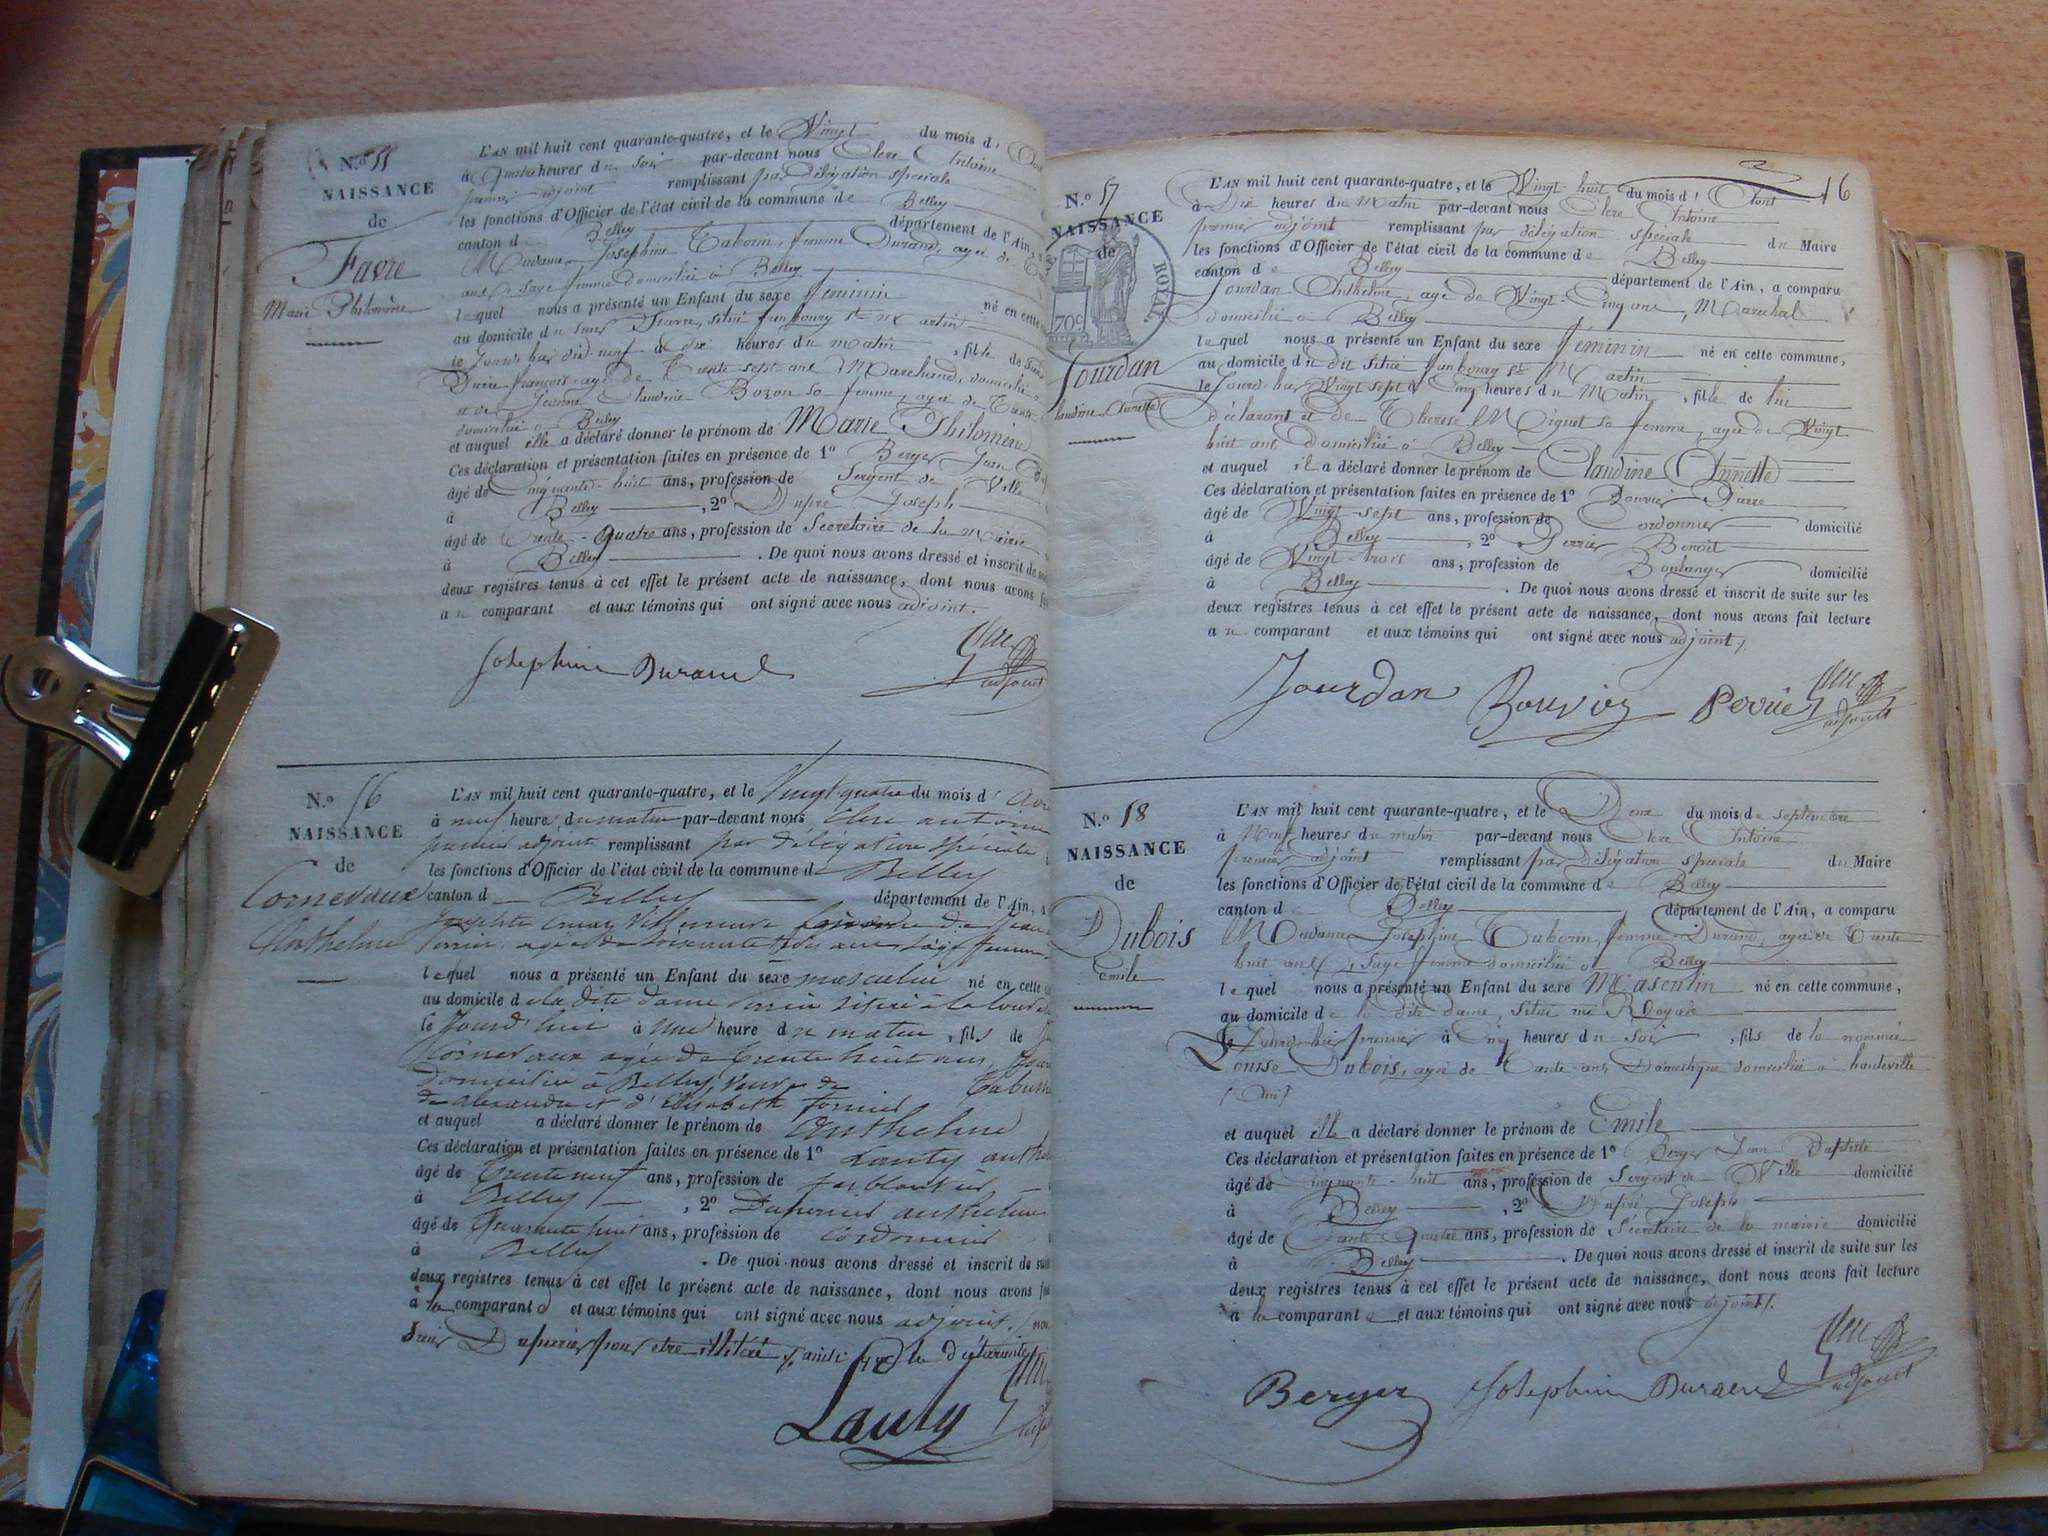 N.o 55
NAISSANCE
de
Favre
Marie Philomène
L'AN mil huit cent quarante-quatre, et le Vingt du mois d'
à quatre heures du soir par-devant nous Clerc Antoine
premier adjoint remplissant par délégation spéciale
les fonctions d'Officier de l'état civil de la commune de Belley
canton de Belley département de l'Ain,
Madame Josephine Taborin, femme Durand, agée de
ans sage femme domiciliée à Belley
lequel nous a présenté un Enfant du sexe feminin né en cette
au domicile du sieur Favre, situé faubourg St Martin
le jourd'hui dix neuf à dix heures du matin, fille de
Favre françois agé de Trente sept ans Marchand, domicilié
et de Jeanne Claudine Bozon sa femme, agée de Trente
domiciliée à Belley
et auquel elle a déclaré donner le prénom de Marie Philomène
Ces déclaration et présentation faites en présence de 1o Berger Jean
âgé de Cinquante-huit ans, profession de Sergent de Ville
à Belley, 2o Dupré Joseph
âgé de Trente-quatre ans, profession de Secrétaire de la Mairie
à Belley. De quoi nous avons dressé et inscrit de
deux registres tenus à cet effet le présent acte de naissance, dont nous avons
a u comparant et aux témoins qui ont signé avec nous adjoint.
Josephine Durand
Clerc
adjoint
N.o 56
NAISSANCE
de
Cornevaux
Anthelme
L'AN mil huit cent quarante-quatre, et le Vingt quatre du mois d'
à neuf heures du matin par-devant nous Clerc antoine
premier adjoint remplissant par délégation spéciale
les fonctions d'Officier de l'état civil de la commune de Belley
canton de Belley département de l'Ain,
agée de soixante ans sage femme
lequel nous a présenté un Enfant du sexe masculin né en cette
au domicile de la dite dame située à la
le Jourd'hui à une heure du matin, fils de
Cornevaux agée de trente huit ans,
domiciliée à Belley, veuve de
de alexandre et d'Elisabeth
et auquel a déclaré donner le prénom de Anthelme
Ces déclaration et présentation faites en présence de 1o Lauty
âgé de trente neuf ans, profession de ferblantier
à Belley, 2o Duperier anthelme
âgé de Quarante huit ans, profession de Cordonnier
à Belley. De quoi nous avons dressé et inscrit de
deux registres tenus à cet effet le présent acte de naissance, dont nous avons
à la comparante et aux témoins qui ont signé avec nous adjoint, non
Duperier pour etre illitéré, ainsi que la déclarante
Lauty
16
N.o 57
NAISSANCE
de
ROYAL
70c
Jourdan
Claudine Annette
L'AN mil huit cent quarante-quatre, et le Vingt-huit du mois d'Aout
à Dix heures du Matin par-devant nous Clerc Antoine
premier adjoint remplissant par délégation spéciale du Maire
les fonctions d'Officier de l'état civil de la commune de Belley
canton de Belley département de l'Ain, a comparu
Jourdan Anthelme, agé de Vingt-Cinq ans, Marechal
domicilié à Belley
lequel nous a présenté un Enfant du sexe féminin né en cette commune,
au domicile du dit situé faubourg St Martin
le Jourd'hui Vingt sept à Cinq heures du Matin, fille de lui
déclarant et de Thérèse Miguet sa femme, agée de Vingt
huit ans, domiciliée à Belley
et auquel il a déclaré donner le prénom de Claudine Annette
Ces déclaration et présentation faites en présence de 1o Bouvier Pierre
âgé de Vingt-sept ans, profession de Cordonnier domicilié
à Belley, 2o Perrier Benoit
âgé de Vingt-trois ans, profession de Boulanger domicilié
à Belley. De quoi nous avons dressé et inscrit de suite sur les
deux registres tenus à cet effet le présent acte de naissance, dont nous avons fait lecture
a u comparant et aux témoins qui ont signé avec nous adjoint.
Jourdan Bouvier Perrier Clerc
adjoint
N.o 58
NAISSANCE
de
Dubois
Emile
L'AN mil huit cent quarante-quatre, et le Deux du mois de septembre
à Neuf heures du matin par-devant nous Clerc Antoine
premier adjoint remplissant par délégation speciale du Maire
les fonctions d'Officier de l'état civil de la commune de Belley
canton de Belley département de l'Ain, a comparu
Madame Josephine Taborin, femme Durand, agée de Trente
huit ans, sage femme domiciliée à Belley
lequel nous a présenté un Enfant du sexe Masculin né en cette commune,
au domicile de la dite dame, situé rue Royale
le Jourd'hier premier à Cinq heures du soir, fils de la nommée
Louise Dubois, agée de Trente ans, Domestique domiciliée à hauteville
(Ain)
et auquel elle a déclaré donner le prénom de Emile
Ces déclaration et présentation faites en présence de 1o Berger Jean Baptiste
âgé de Cinquante-huit ans, profession de Sergent de Ville domicilié
à Belley, 2o Dupré Joseph
âgé de Trente-Quatre ans, profession de Sécrétaire de la mairie domicilié
à Belley. De quoi nous avons dressé et inscrit de suite sur les
deux registres tenus à cet effet le présent acte de naissance, dont nous avons fait lecture
à la comparante et aux témoins qui ont signé avec nous adjoint.
Berger Josephine Durand Clerc
adjoint